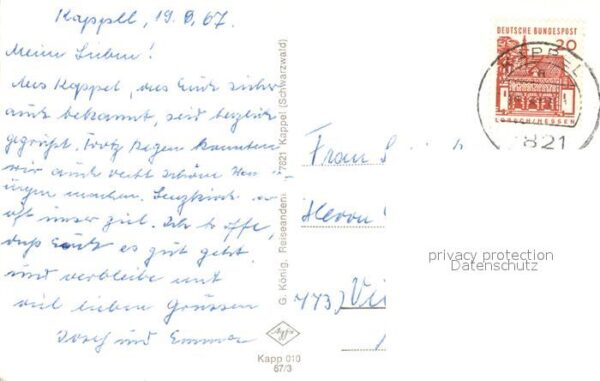 Kappell, 19.9.67.
Meine Lieben!
Aus Kappel, das Euch sicher
auch bekannt, seid herzlich
gegrüßt. Trotz Regen konnten
wir auch recht schöne
machen. Lenzkirch
oft unser Ziel. Ich hoffe,
daß Euch es gut geht
und verbleibe mit
viel lieben Grüssen
Josef und Emma
G. König, Reiseandenken, 7821 Kappel (Schwarzwald)
Agfa
Kapp 010
67/3
DEUTSCHE BUNDESPOST
20
LORSCH/HESSEN
KAPPEL
7821
Frau
Herrn
privacy protection
Datenschutz
773)